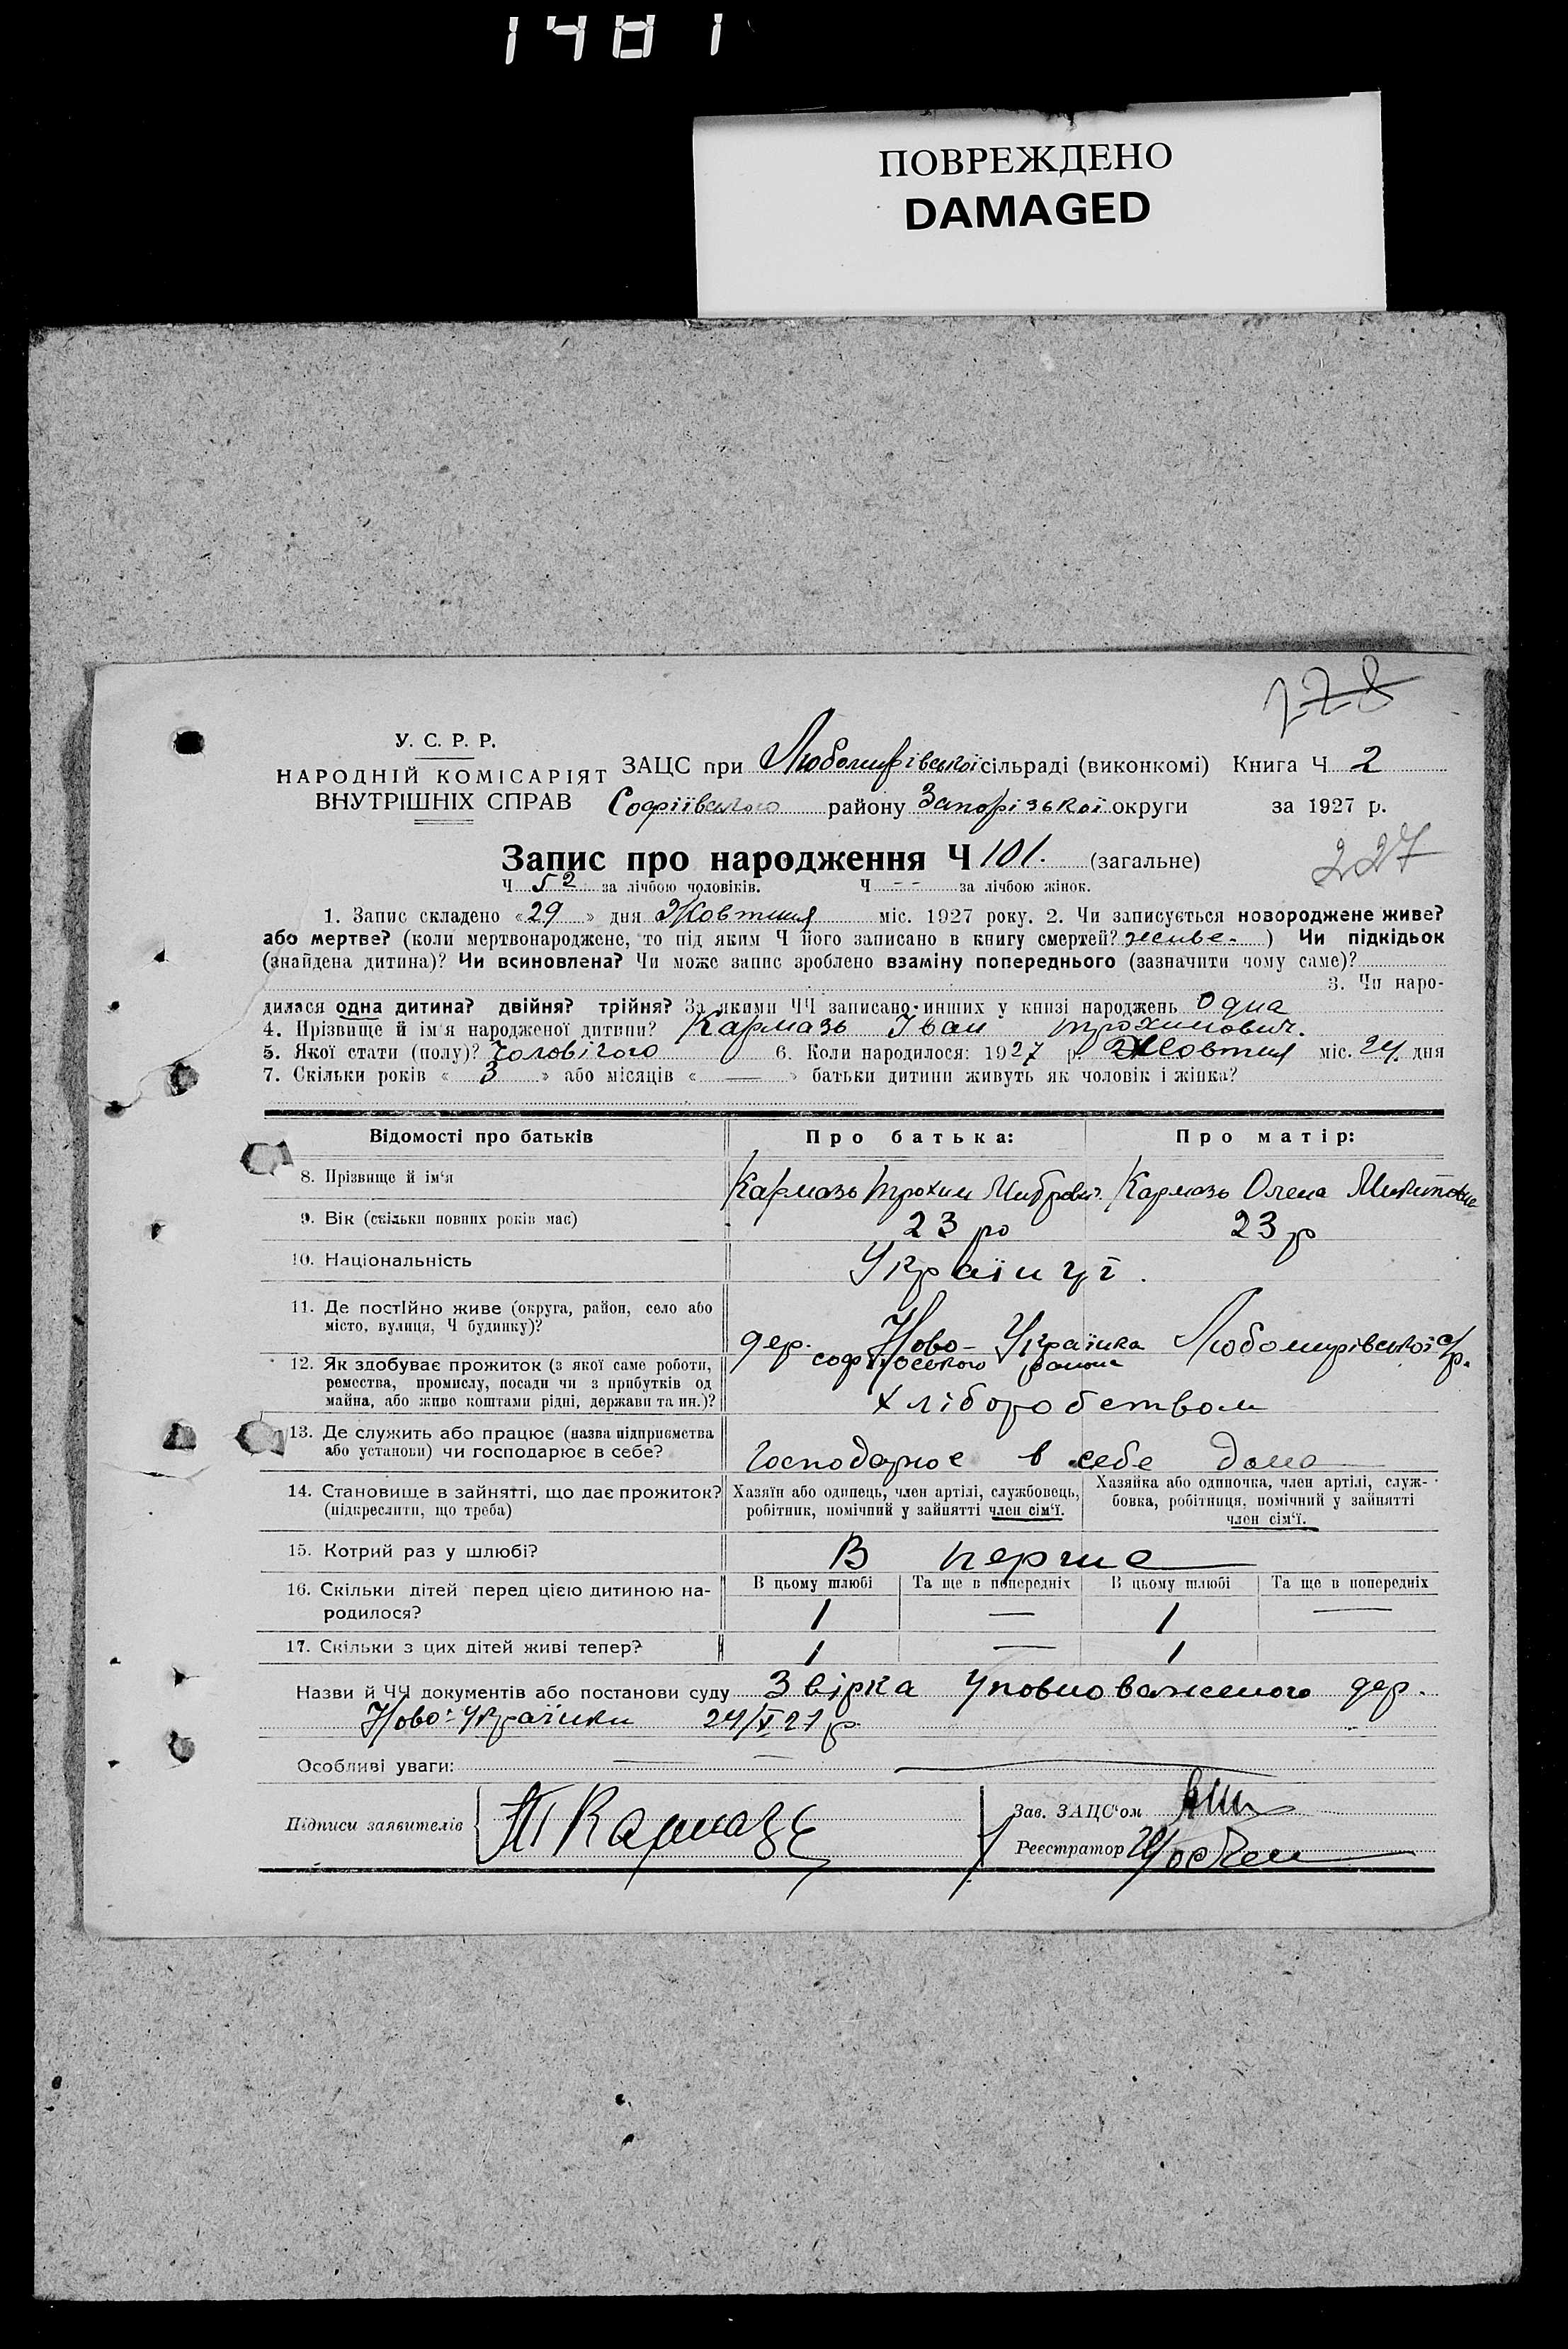 1481
ПОВРЕЖДЕНО
DAMAGED
228
У. С. Р. Р.
НАРОДНІЙ КОМІСАРІЯТ
ВНУТРІШНІХ СПРАВ
ЗАЦС при Любомирівської сільраді (виконкомі) Книга Ч 2
Софіївського району Запорізької округи за 1927 р.
227
Запис про народження Ч 101. (загальне)
Ч 52 за лічбою чоловіків. Ч -- за лічбою жінок.
1. Запис складено «29» дня Жовтня міс. 1927 року. 2. Чи записується новороджене живе?
або мертве? (коли мертвонароджене, то під яким Ч його записано в книгу смертей? живе.) Чи підкідьок
(знайдена дитина)? Чи всиновлена? Чи може запис зроблено взаміну попереднього (зазначити чому саме)?
3. Чи наро-
дилася одна дитина? двійня? трійня? За якими ЧЧ записано инших у книзі народжень Одна
4. Прізвище й ім'я народженої дитини? Кармазь Іван Трохимович.
5. Якої стати (полу)? Чоловічого 6. Коли народилося: 1927 р. Жовтня міс. 24. дня
7. Скільки років « 3 » або місяців « — » батьки дитини живуть як чоловік і жінка?
Відомості про батьків Про батька: Про матір:
8. Прізвище й ім'я Кармазь Трохим Кармазь Олена
9. Вік (скільки повних років має) 23 ро 23 р
10. Національність Українці.
11. Де постІйно живе (округа, район, село або
місто, вулиця, Ч будинку)?
дер. Ново-Українка Любомирівської с/р.
софіївського района
12. Як здобуває прожиток (з якої саме роботи,
ремества, промислу, посади чи з прибутків од
майна, або живе коштами рідні, держави та ин.)?
Хліборобством
13. Де служить або працює (назва підприємства
або установи) чи господарює в себе?
Господарює в себе дома
14. Становище в зайнятті, що дає прожиток?
(підкреслити, що треба)
Хазяїн або одинець, член артілі, службовець,
робітник, помічний у зайнятті член сім'ї.
Хазяйка або одиночка, член артілі, служ-
бовка, робітниця, помічний у зайнятті
член сім'ї.
15. Котрий раз у шлюбі? В перше
16. Скільки дітей перед цією дитиною на-
родилося?
В цьому шлюбі Та ще в попередніх В цьому шлюбі Та ще в попередніх
1 — 1 —
17. Скільки з цих дітей живі тепер? 1 — 1
Назви й ЧЧ документів або постанови суду Звірка Уповноваженого дер.
Ново-Українки 24/X 27 р.
Особливі уваги:
Підписи заявителів Т Кармазь
Зав. ЗАЦС'ом
Реєстратор